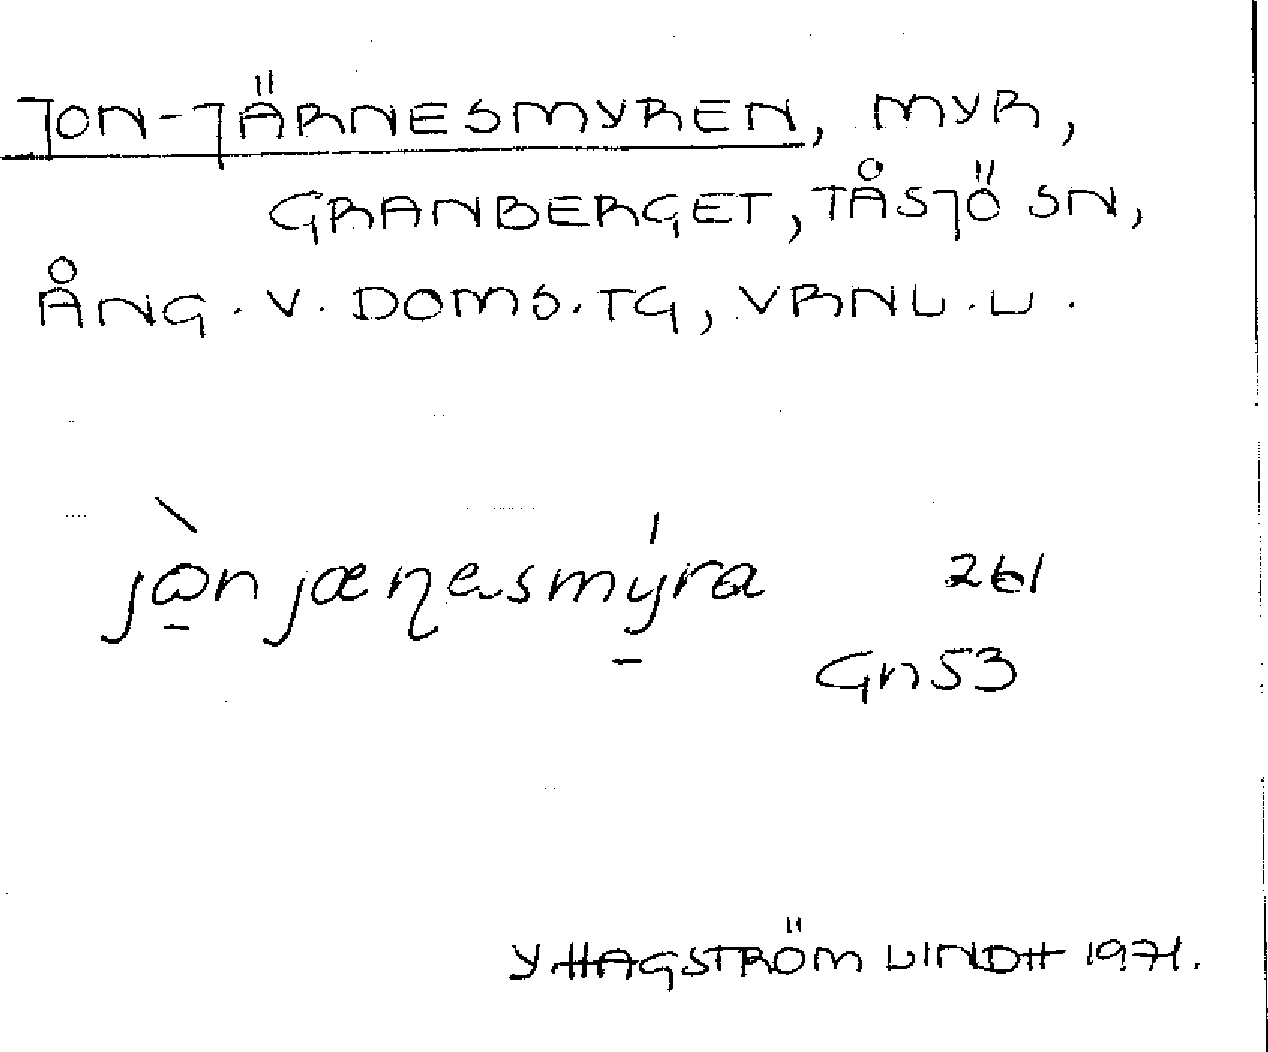 JON-JÄRNESMYREN, MYR,
GRANBERGET, TÅSJÖ SN,
ÅNG. V. DOMS. TG, VRNL. L.
jɷ̀njæɳesmýra 261
Gn53
Y HAGSTRÖM LINDH 1971.